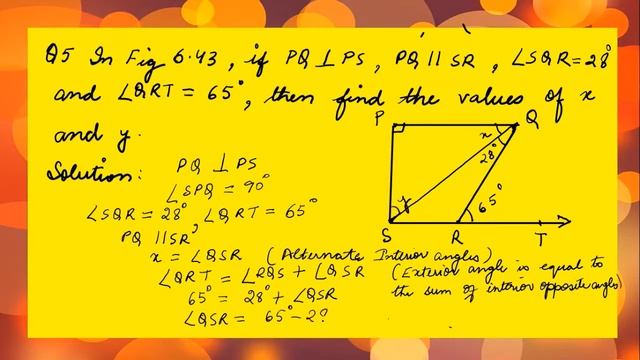 Q5 In Fig 6.43, if PQ ⊥ PS, PQ || SR, ∠SQR = 28°
and ∠QRT = 65°, then find the values of x
and y.
P Q
x
28°
y
65°
S R T
Solution:
PQ ⊥ PS
∠SPQ = 90°
∠SQR = 28°, ∠QRT = 65°
PQ || SR,
x = ∠QSR (Alternate Interior angles)
∠QRT = ∠RQS + ∠QSR (Exterior angle is equal to
65° = 28° + ∠QSR the sum of interior opposite angles)
∠QSR = 65° - 2?